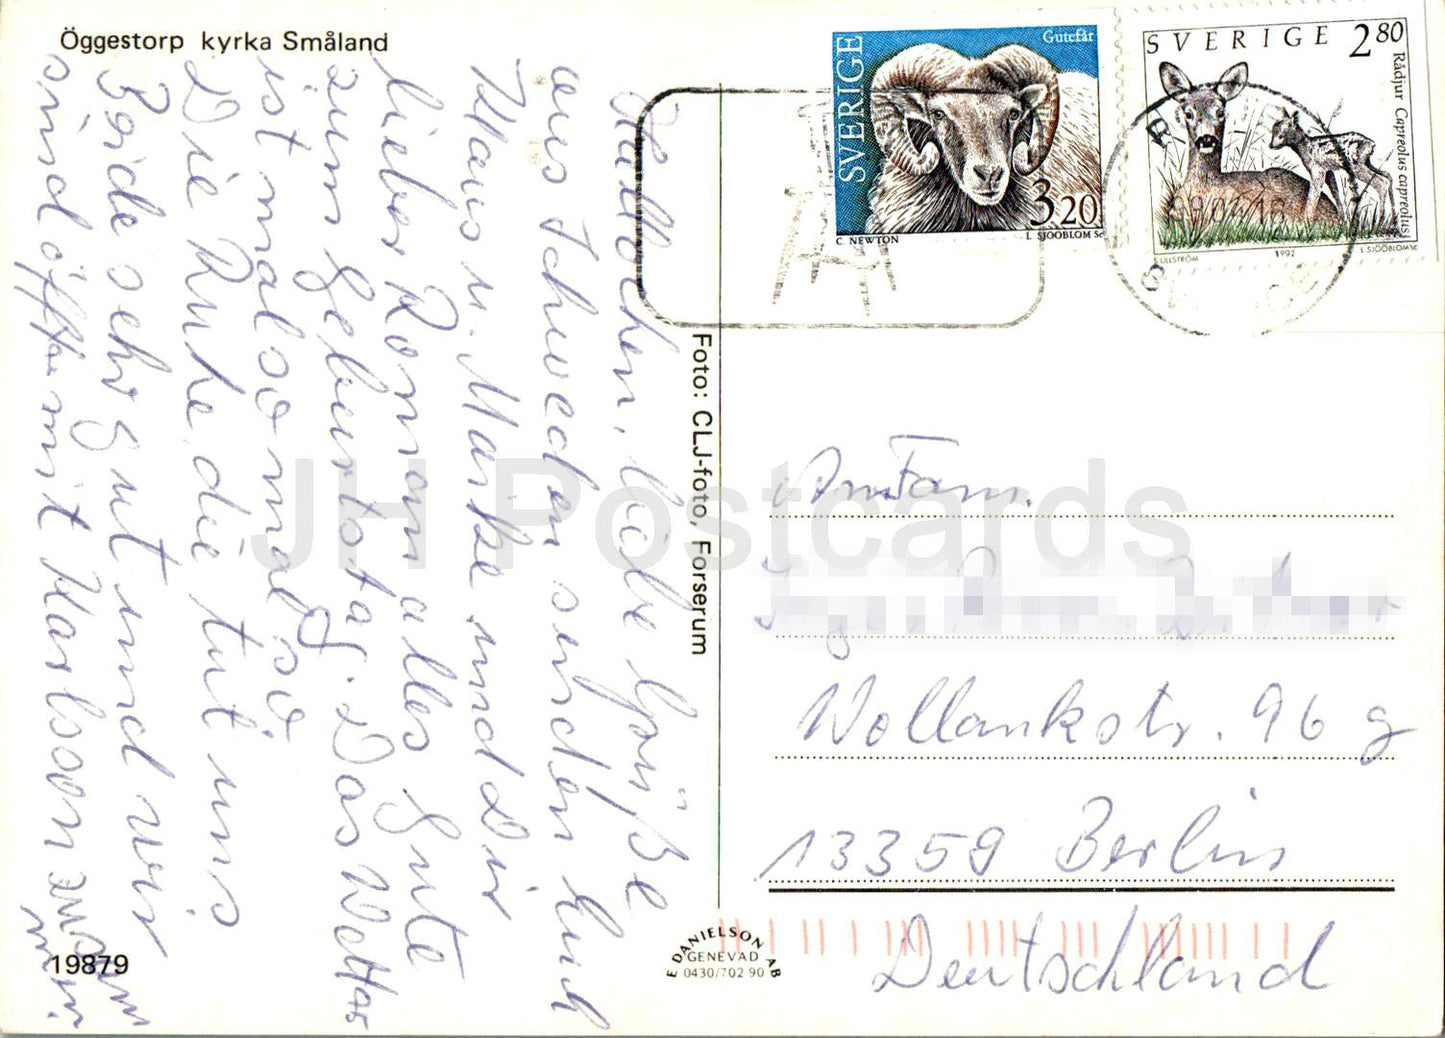 Öggestorp kyrka Småland
Hallöchen, liebe Grüße
aus Schweden senden Euch
Klaus u. Marike und Dir
lieber Roman alles Gute
zum Geburtstag. Das Wetter
ist mal so mal so.
Die Ruhe, die tut uns
Beide sehr gut und wir
sind öfter mit Karlsson zusam
men.
19879
Foto: CLJ-foto, Forserum
E DANIELSON AB
GENEVAD
0430/702 90
SVERIGE
Gutefår
3.20
C. NEWTON
L. SJÖÖBLOM Sc
SVERIGE 2 80
Rådjur Capreolus capreolus
S. ULLSTRÖM
1992
L SJÖÖBLOM SC
An Fam.
Wollankstr. 96 g
13359 Berlin
Deutschland
JH Postcards